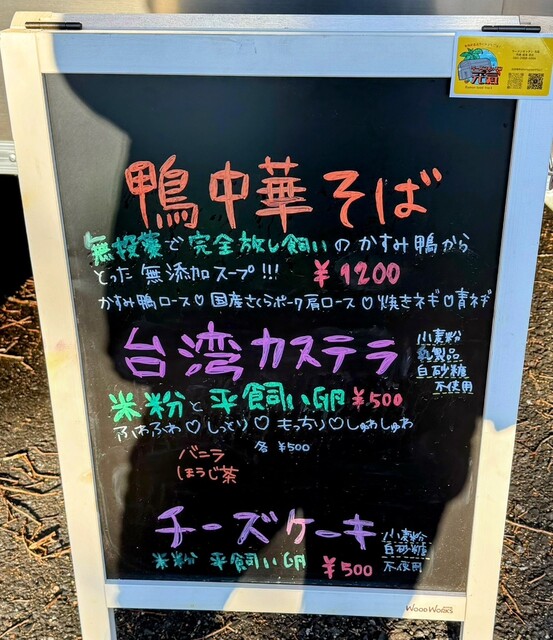 鴨中華そば
無投薬で完全放し飼いのかすみ鴨から
とった無添加スープ!!! ¥1200
かすみ鴨ロース♡国産さくらポーク肩ロース♡焼きネギ♡青ネギ
台湾カステラ
小麦粉
乳製品
白砂糖
不使用
米粉と平飼い卵 ¥500
ふわふわ♡しっとり♡もっちり♡しゅわしゅわ
各¥500
バニラ
ほうじ茶
チーズケーキ
小麦粉
白砂糖
不使用
米粉 平飼い卵 ¥500
WOODWORKS